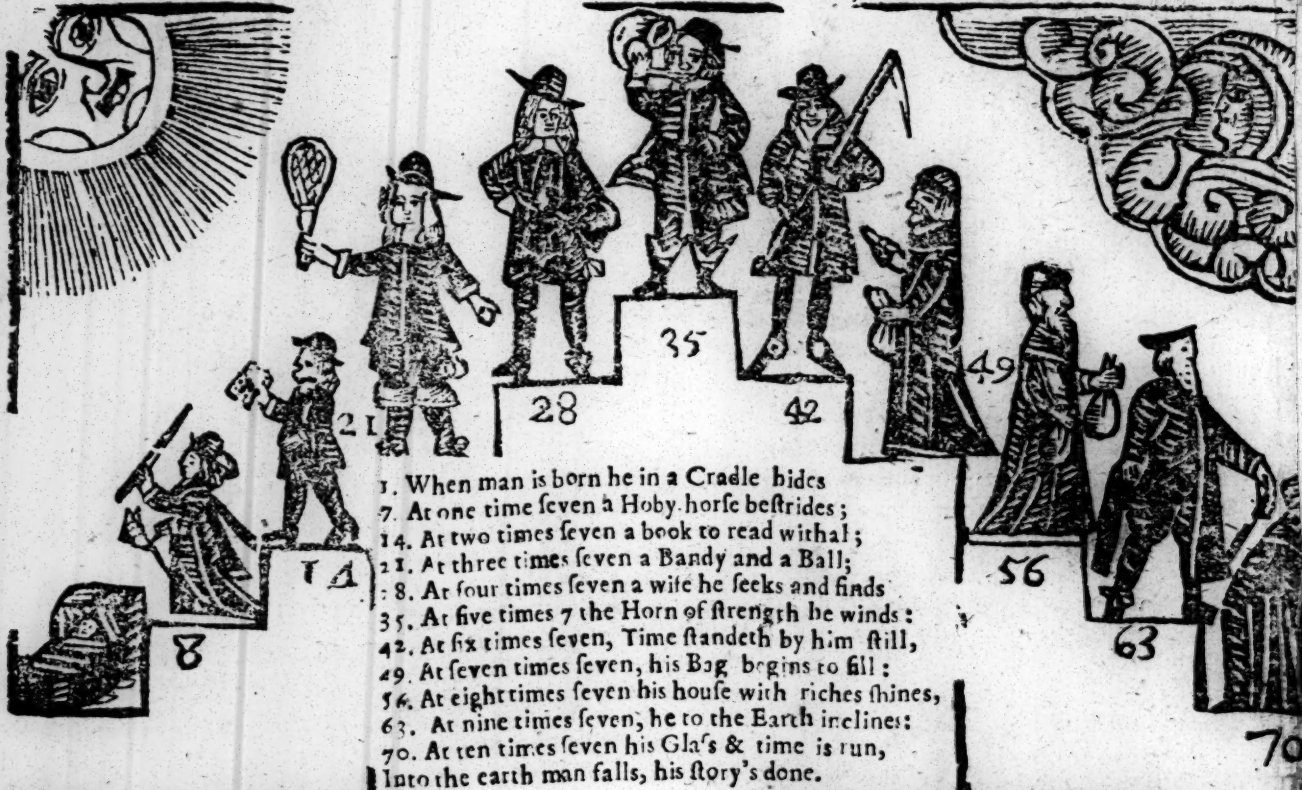 35
28
42
21
49
14
56
8
63
70
1. When man is born he in a Cradle hides
7. At one time ſeven a Hoby-horſe beſtrides;
14. At two times ſeven a book to read withal;
21. At three times ſeven a Bandy and a Ball;
:8. At four times ſeven a wife he ſeeks and finds
35. At five times 7 the Horn of ſtrength he winds:
42. At ſix times ſeven, Time ſtandeth by him ſtill,
49. At ſeven times ſeven, his Bag begins to fill:
56. At eight times ſeven his houſe with riches ſhines,
63. At nine times ſeven, he to the Earth inclines:
70. At ten times ſeven his Glaſs & time is run,
Into the earth man falls, his ſtory's done.